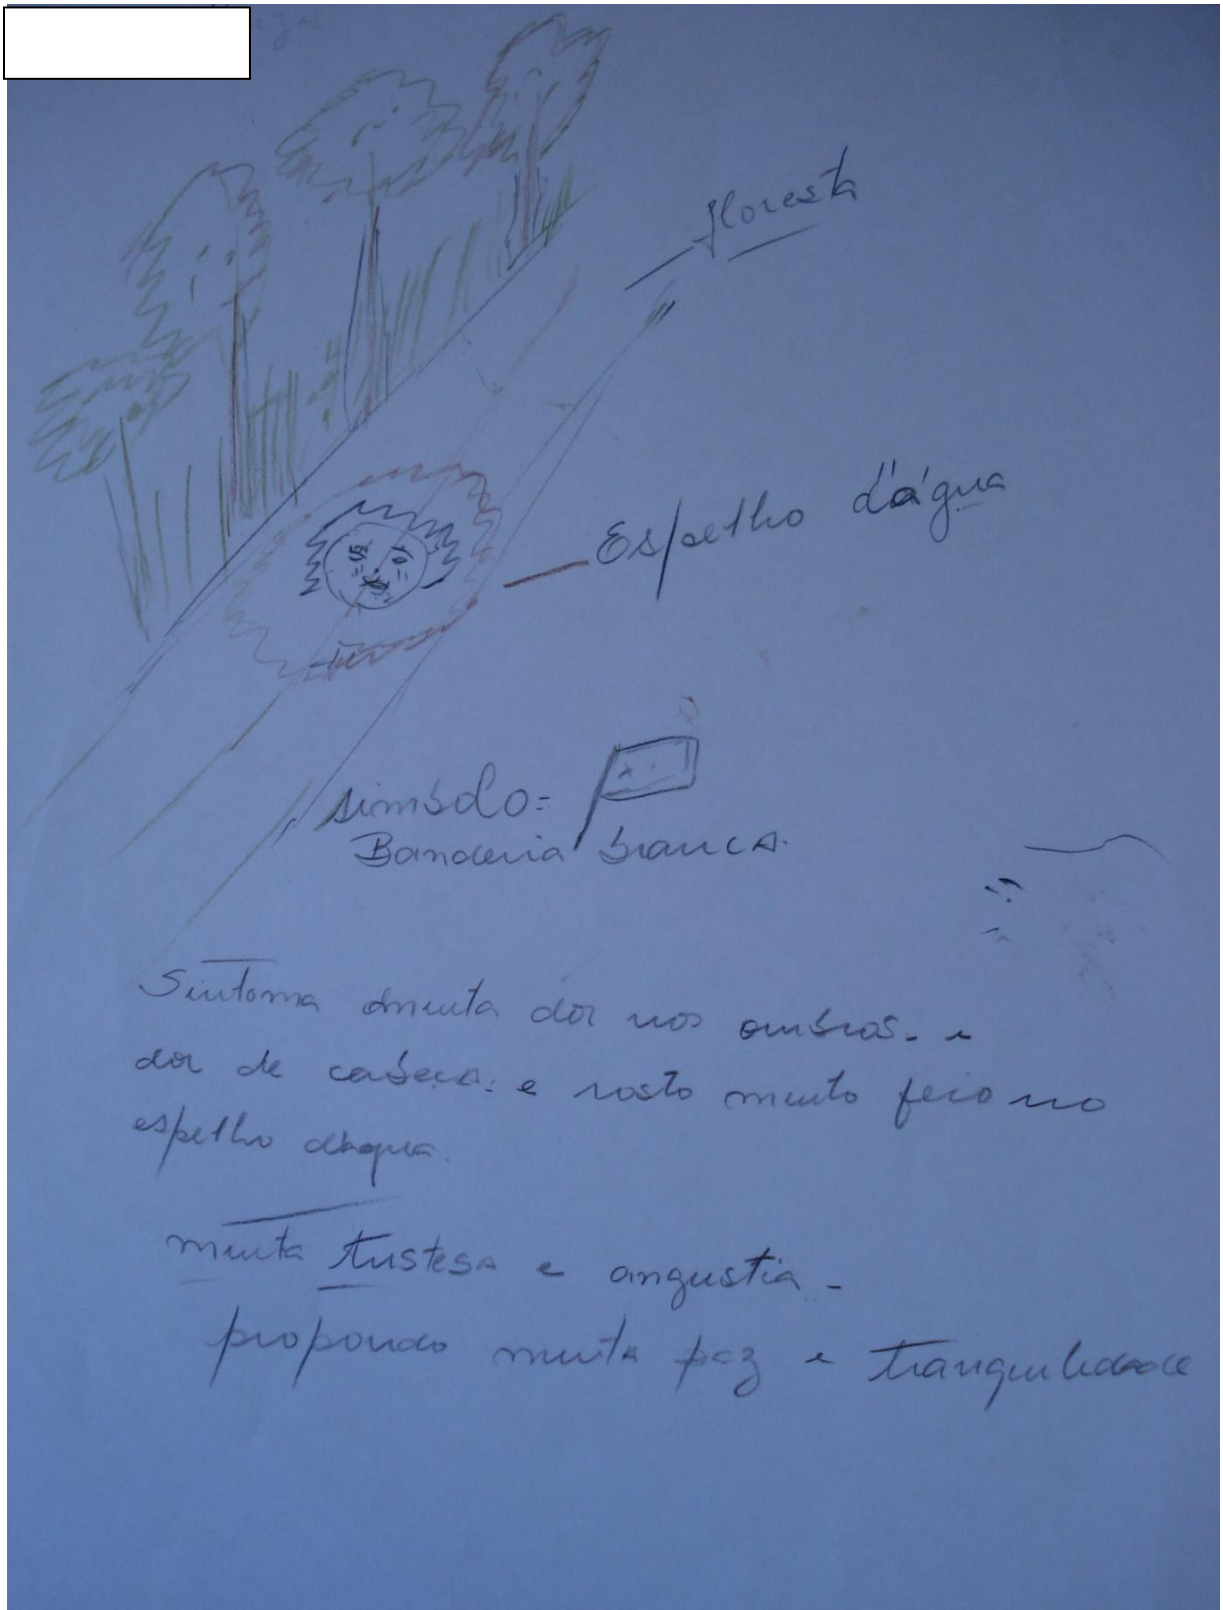 floresta
Espelho d'água
simbolo=
Banderia branca.
Sintoma muita dor nos ombros. e
dor de cabeca. e rosto muito feio no
espelho dagua.
muita tristesa e angustia -
propondo muita paz e tranquilidade